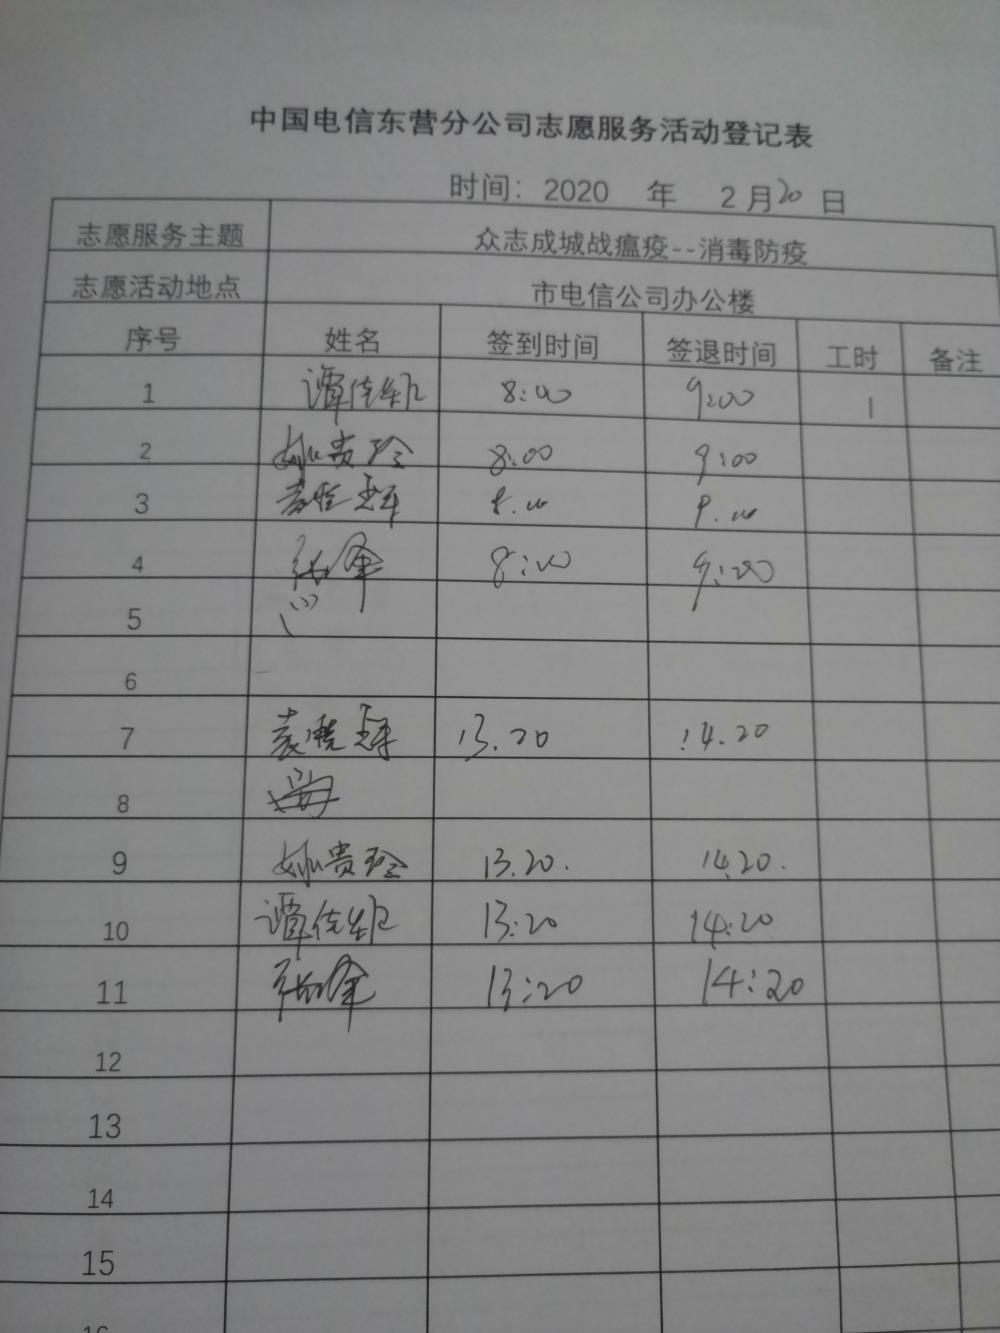 中国电信东营分公司志愿服务活动登记表
时间：2020 年 2月20日
志愿服务主题 众志成城战瘟疫--消毒防疫
志愿活动地点 市电信公司办公楼
序号 姓名 签到时间 签退时间 工时 备注
1 8:00 9:00 1
2 姚贵玲 8:00 9:00
3 8.00 9.00
4 8:00 9:00
5
6
7 13.20 14.20
8
9 姚贵玲 13.20. 14.20.
10 13:20 14:20
11 13:20 14:20
12
13
14
15
16